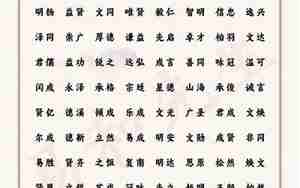 明扬 益贤 文同 唯贤 毅仁 智明 信忠 逸兴
泽同 崇广 厚德 谦益 先启 卓才 柏羽 文达
君儒 益功 饶之 远弘 成言 善同 咏冠 温可
闵成 永泽 承格 宗廷 星德 山海 承俊 诚言
贤亿 成功 儒倾 乐成 文光 广圣 君成 文焕
尔成 德新 立然 成毅 明安 文勋 成贤 非同
易胜 贤齐 之恒 复南 明达 思原 松然 焕文